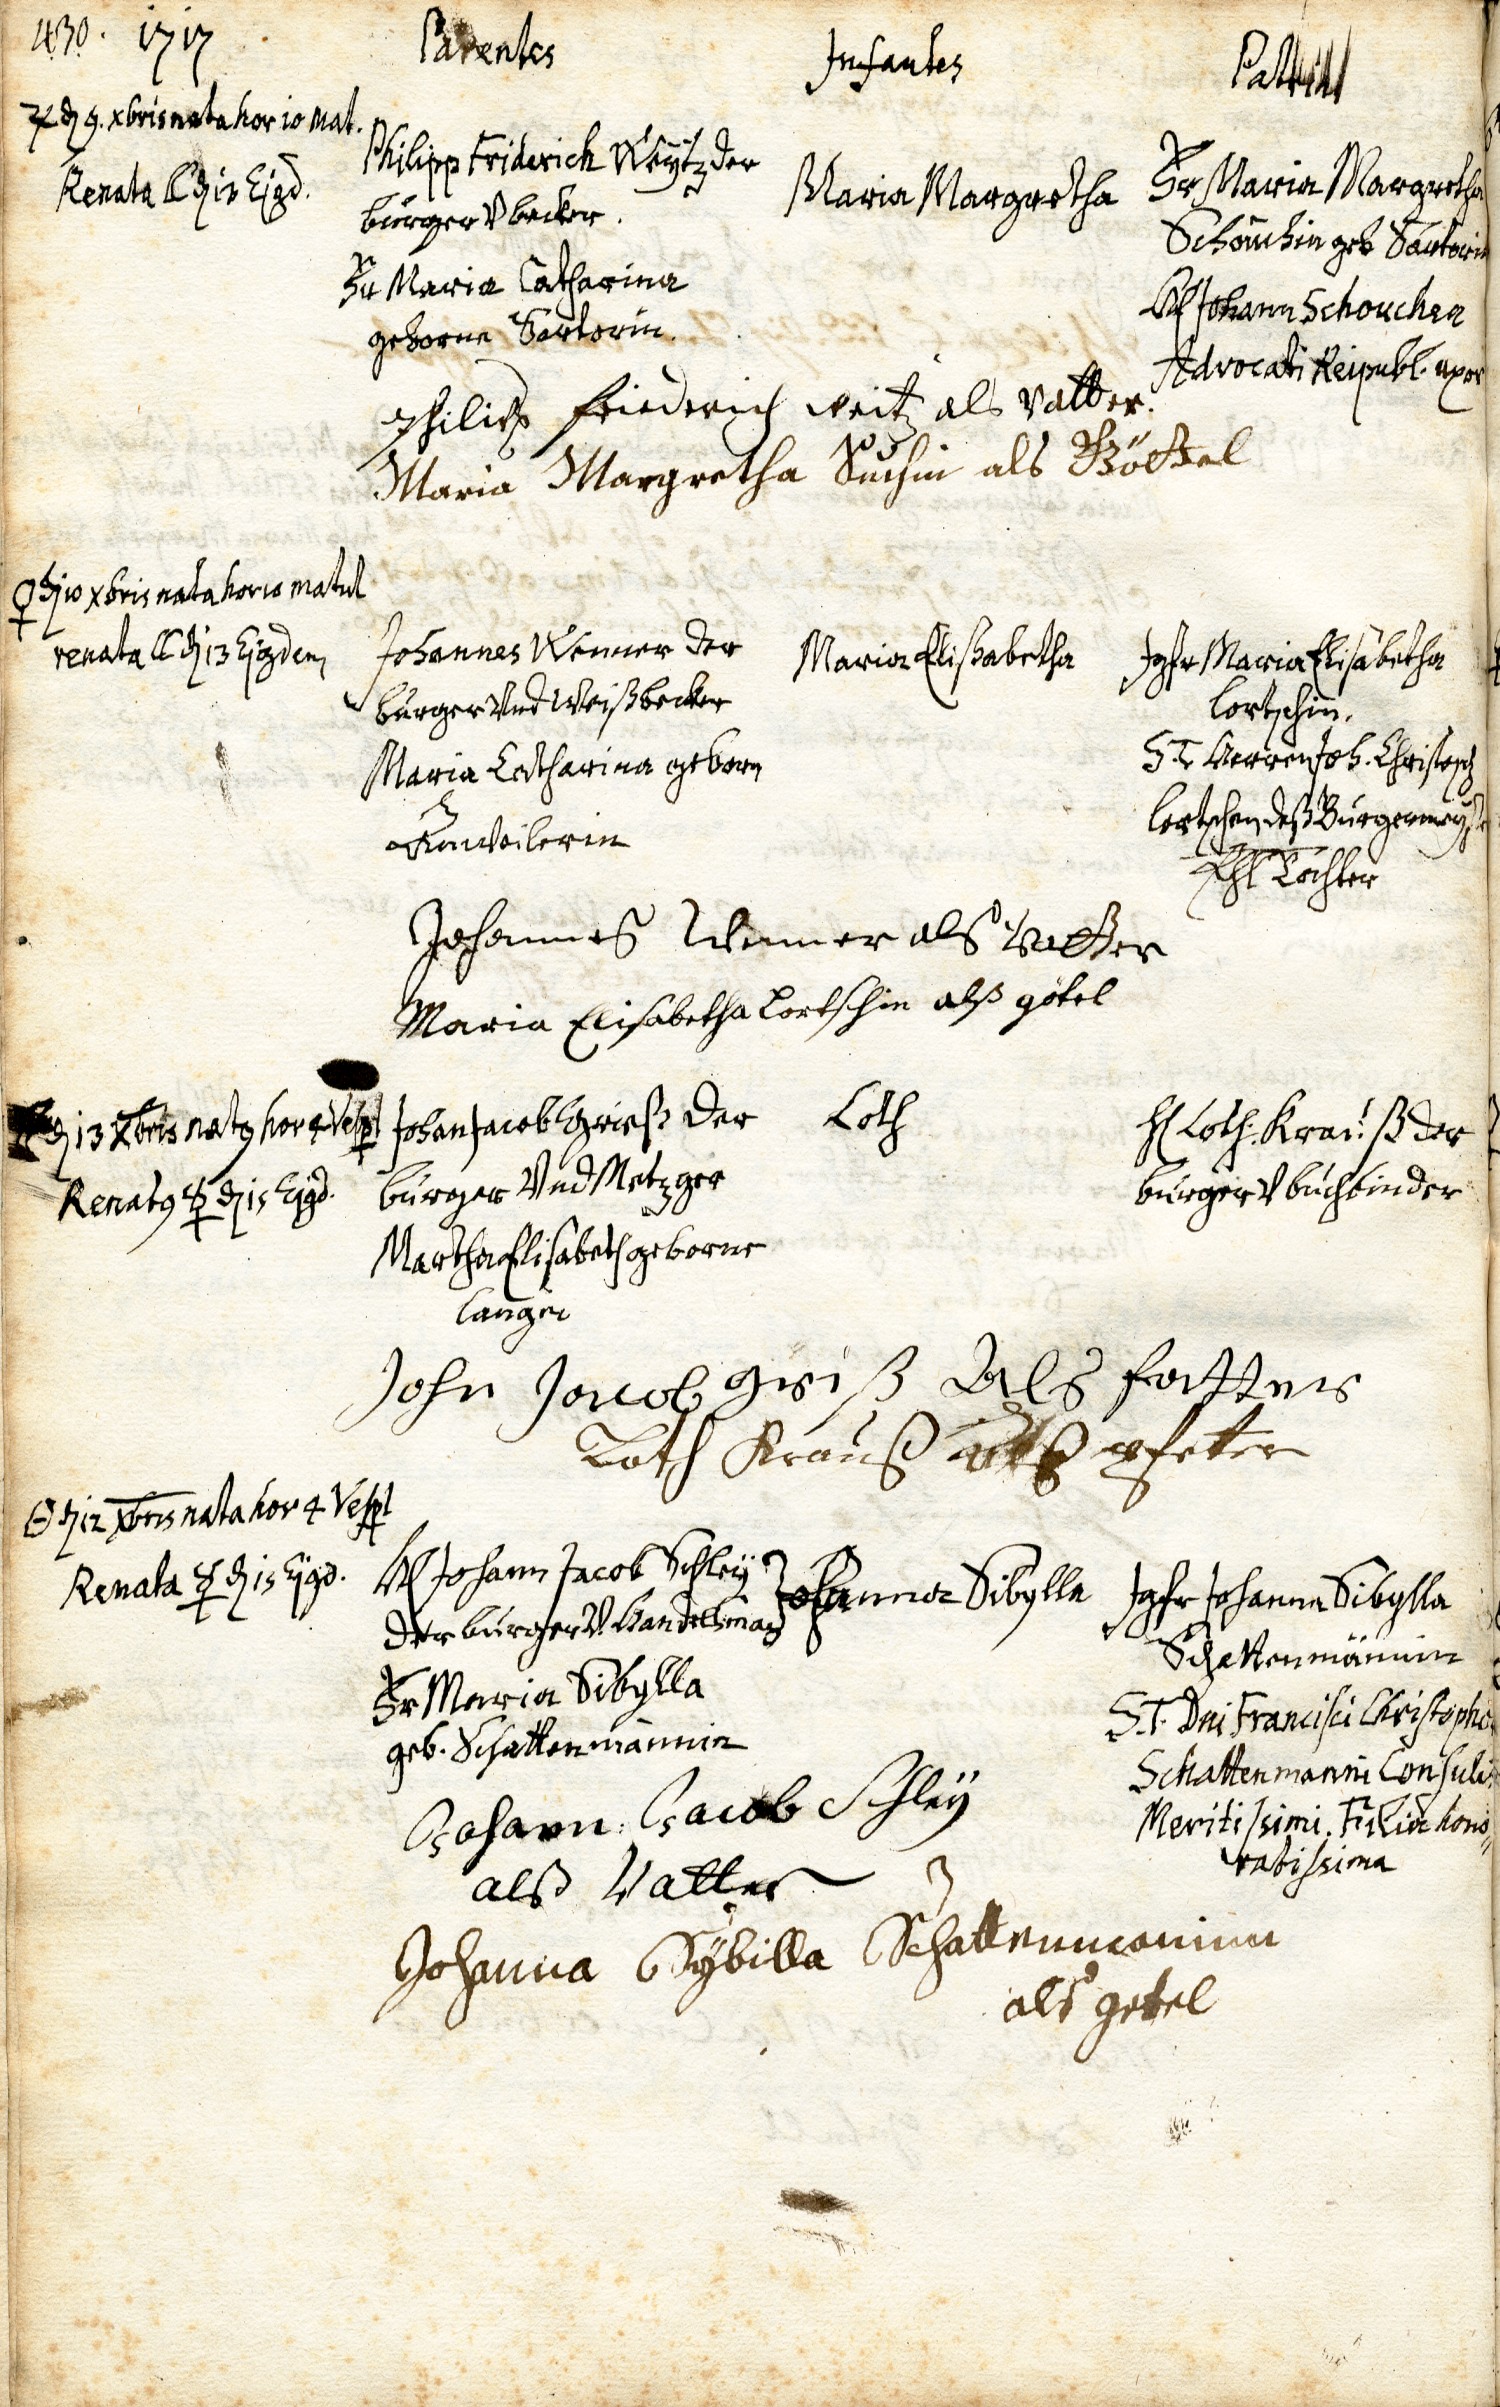 430. 1717
Parentes
Infantes
Patrini
♃ d 9. xbris nata hor 10 mat.
Renata ☾ d 13 Ejgd.
Philipp Friderich Weytz der
burger V becker.
Fr Maria Catharina
geborne Sartorin.
Maria Margretha
Fr Maria Margretha
Schouchin geb Sartorin
H Johann Schouchen
Advocati Reipubl. uxor
Philip friederich weitz als vatter.
Maria Margretha Suchin als Göttel
♀ d 10 xbris nata hor 10 matut
renata ☾ d 13 Ejgdem
Johannes Wenner der
burger Vnd Weißbecker
Maria Catharina geborn
Anweilerin
Maria Elisabetha
Jgfr Maria Elisabetha
Lortschin.
S.T. Herren Joh. Christoph
Lortschen deß Burgermeyst
Ehl Tochter
Johannes Wenner als Vatter
Maria Elisabetha Lortschin alß götel
d 13 Xbris nat9 hor 4 Vesp
Renat9 ☿ d 15 Ejgd.
Johan Jacob Grieß der
burger Vnd Metzger
Martha Elisabeth geborne
Langin
Loth
H Loth. Krauß der
burger V buchbinder
John Jacob griß Als fatter
Loth Krauß alß pfetter
☉ d 12 Xbris nata hor 4 Vesp
Renata ☿ d 15 Ejgd.
H Johann Jacob Schley
der burger V. Handelsman
Fr Maria Sibylla
geb. Schattenmännin
Johanna Sibylla
Jgfr Johanna Sibylla
Schattenmännin
S.T. Dni Francisci Christopho
Schattenmanni Consulis
Meritissimi. Filia hono,,
ratissima
Johann Jacob Schleÿ
alß Vatter
Johanna Sybilla Schattenmanin
als getel